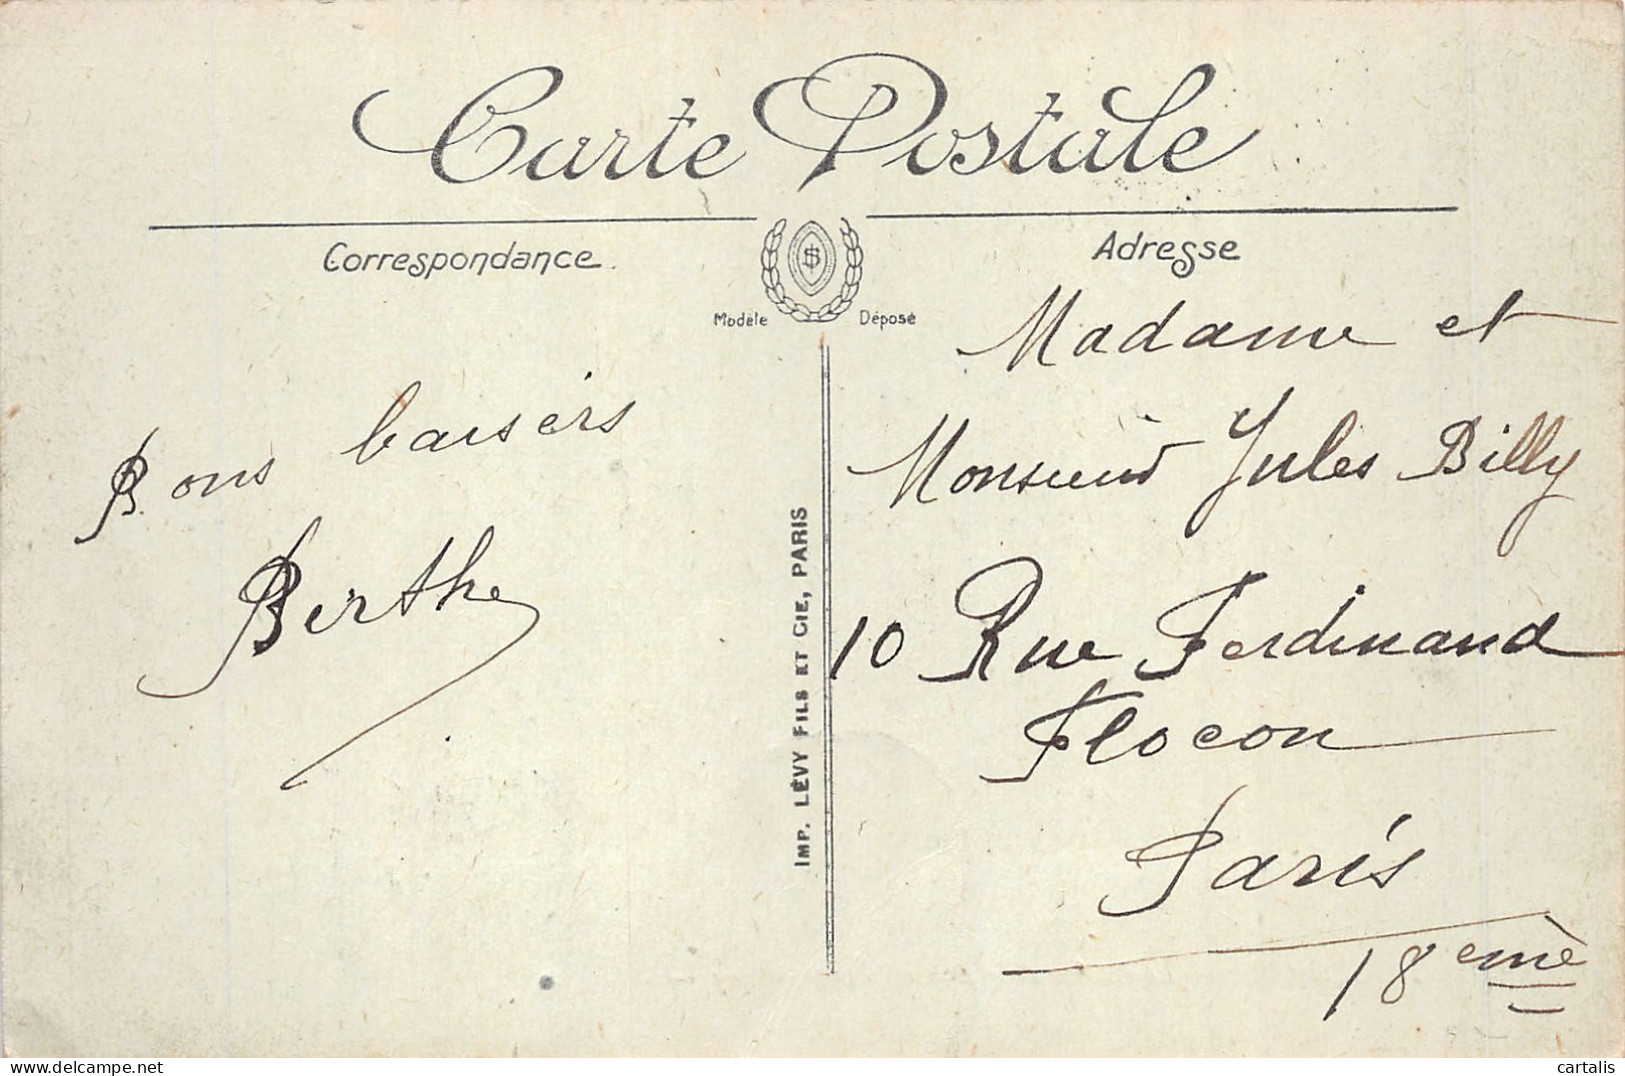 Carte Postale
Correspondance
Adresse
Modèle Déposé
Bons baisers
Berthe
IMP. LÉVY FILS ET CIE, PARIS
Madame et
Monsieur Jules Billy
10 Rue Ferdinand
Flocon
Paris
18eme
delcampe.net
cartalis